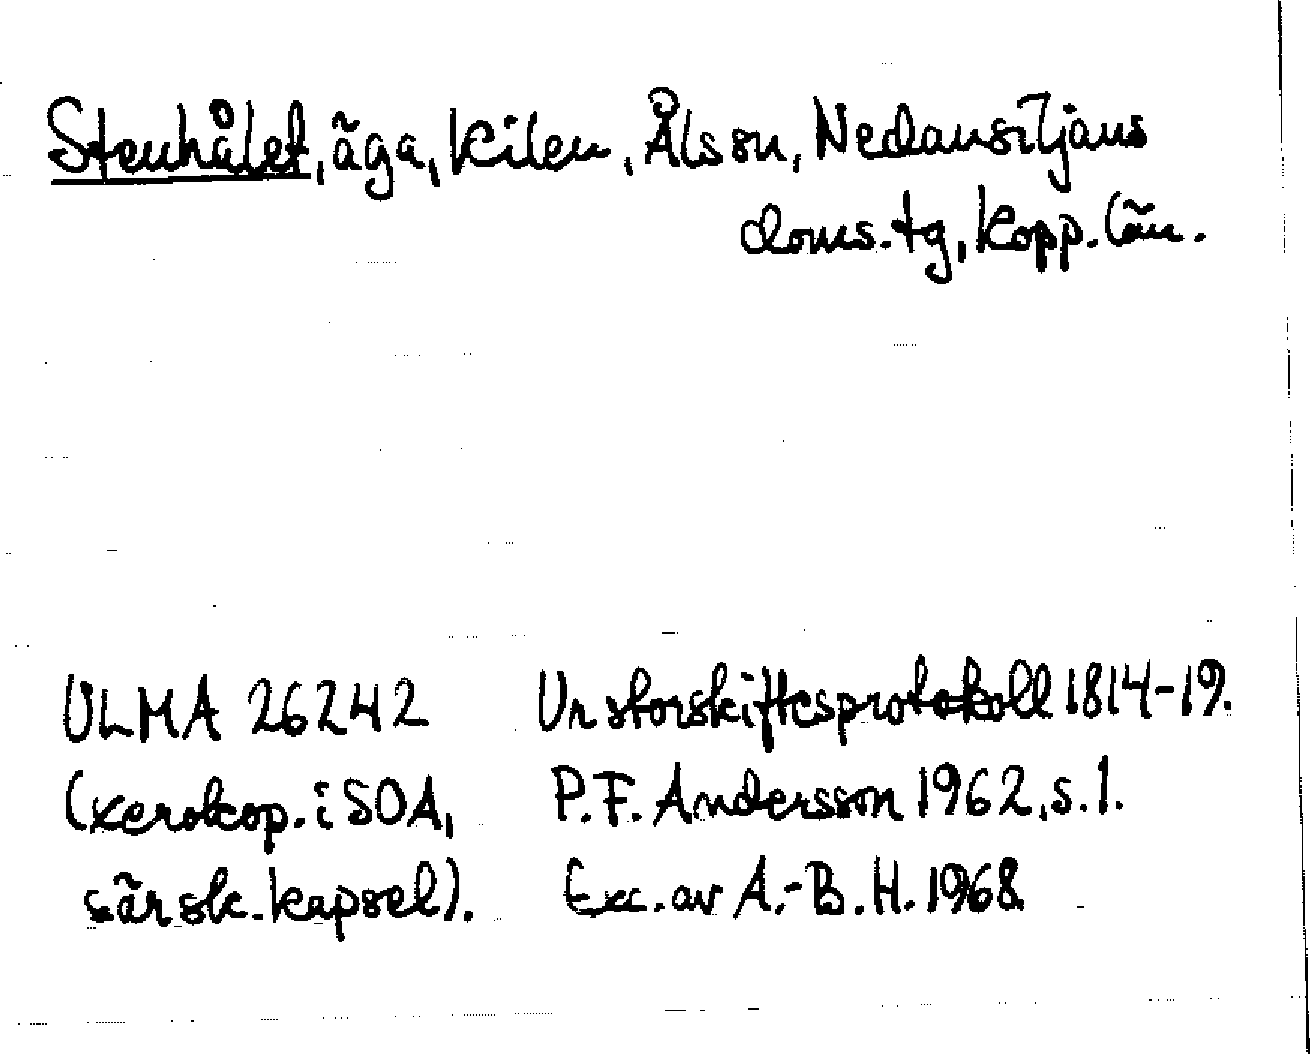 Stenhålet, äga, Kilen, Åls sn, Nedansiljans
doms.tg, Kopp. län.
ULMA 26242
(xerokop. i SOA,
särsk. kapsel).
Ur storskiftesprotokoll 1814-19.
P.F. Andersson 1962, s. 1.
Exc. av A.-B. H. 1968